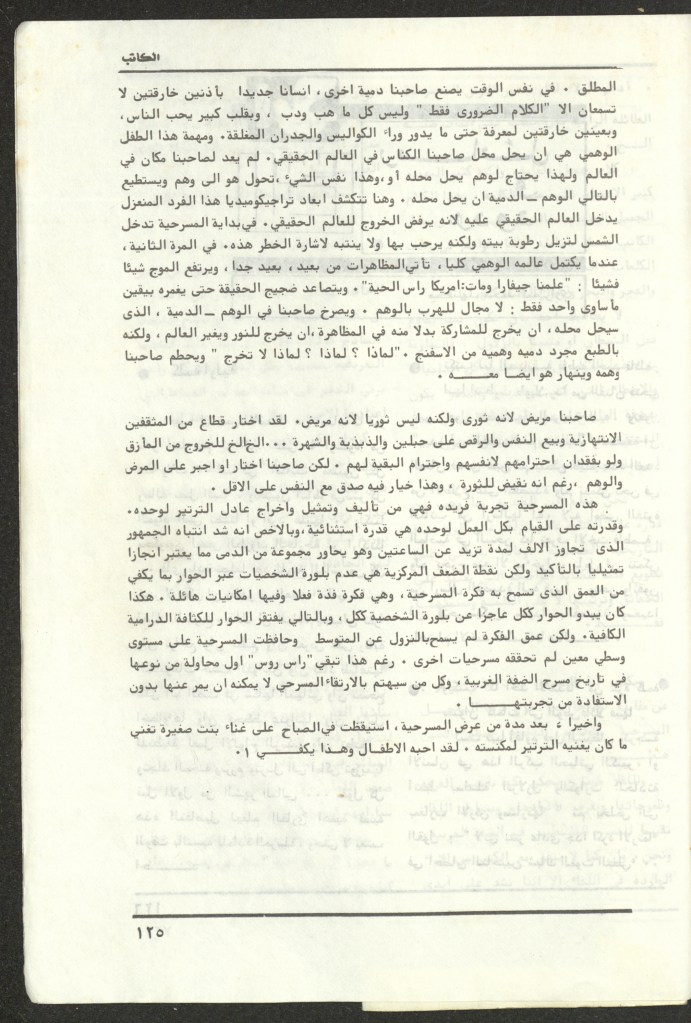 الكاتب
المطلق . في نفس الوقت يصنع صاحبنا دمية اخرى ، انسانا جديدا بأذنين خارقتين لا
تسمعان الا "الكلام الضرورى فقط " وليس كل ما هب ودب ، وبقلب كبير يحب الناس ،
وبعينين خارقتين لمعرفة حتى ما يدور وراء الكواليس والجدران المغلقة. ومهمة هذا الطفل
الوهمي هي ان يحل محل صاحبنا الكناس في العالم الحقيقي. لم يعد لصاحبنا مكان في
العالم ولهذا يحتاج لوهم يحل محله أو،وهذا نفس الشيء ،تحول هو الى وهم ويستطيع
بالتالي الوهم ــ الدمية ان يحل محله . وهنا تتكشف ابعاد تراجيكوميديا هذا الفرد المنعزل
يدخل العالم الحقيقي عليه لانه يرفض الخروج للعالم الحقيقي. في بداية المسرحية تدخل
الشمس لتزيل رطوبة بيته ولكنه يرحب بها ولا ينتبه لاشارة الخطر هذه. في المرة الثانية ،
عندما يكتمل عالمه الوهمي كليا ، تأتي المظاهرات من بعيد ، بعيد جدا ، ويرتفع الموج شيئا
فشيئا : "علمنا جيفارا ومات:امريكا راس الحية" . ويتصاعد ضجيج الحقيقة حتى يغمره بيقين
مأساوى واحد فقط : لا مجال للهرب بالوهم . ويصرخ صاحبنا في الوهم ــ الدمية ، الذى
سيحل محله ، ان يخرج للمشاركة بدلا منه في المظاهرة ،ان يخرج للنور ويغير العالم ، ولكنه
بالطبع مجرد دميه وهميه من الاسفنج . "لماذا ؟ لماذا ؟ لماذا لا تخرج " ويحطم صاحبنا
وهمه وينهار هو ايضا معـــــه .
صاحبنا مريض لانه ثورى ولكنه ليس ثوريا لانه مريض. لقد اختار قطاع من المثقفين
الانتهازية وبيع النفس والرقص على حبلين والذبذبة والشهرة ...الخالخ للخروج من المأزق
ولو بفقدان احترامهم لانفسهم واحترام البقية لهم . لكن صاحبنا اختار او اجبر على المرض
والوهم ،رغم انه نقيض للثورة ، وهذا خيار فيه صدق مع النفس على الاقل .
هذه المسرحية تجربة فريده فهي من تأليف وتمثيل واخراج عادل الترتير لوحده.
وقدرته على القيام بكل العمل لوحده هي قدرة استثنائية،وبالاخص انه شد انتباه الجمهور
الذى تجاوز الالف لمدة تزيد عن الساعتين وهو يحاور مجموعة من الدمى مما يعتبر انجازا
تمثيليا بالتأكيد ولكن نقطة الضعف المركزية هي عدم بلورة الشخصيات عبر الحوار بما يكفي
من العمق الذى تسمح به فكرة المسرحية ، وهي فكرة فذة فعلا وفيها امكانيات هائلة . هكذا
كان يبدو الحوار ككل عاجزا عن بلورة الشخصية ككل ، وبالتالي يفتقر الحوار للكثافة الدرامية
الكافية. ولكن عمق الفكرة لم يسمح بالنزول عن المتوسط وحافظت المسرحية على مستوى
وسطي معين لم تحققه مسرحيات اخرى . رغم هذا تبقي "راس روس" اول محاولة من نوعها
في تاريخ مسرح الضفة الغربية ، وكل من سيهتم بالارتقاء المسرحي لا يمكنه ان يمر عنها بدون
الاستفادة من تجربتهــــــا .
واخيرا ، بعد مدة من عرض المسرحية ، استيقظت في الصباح على غناء بنت صغيرة تغني
ما كان يغنيه الترتير لمكنسته . لقد احبه الاطفال وهذا يكفــــي ٠١
١٢٥